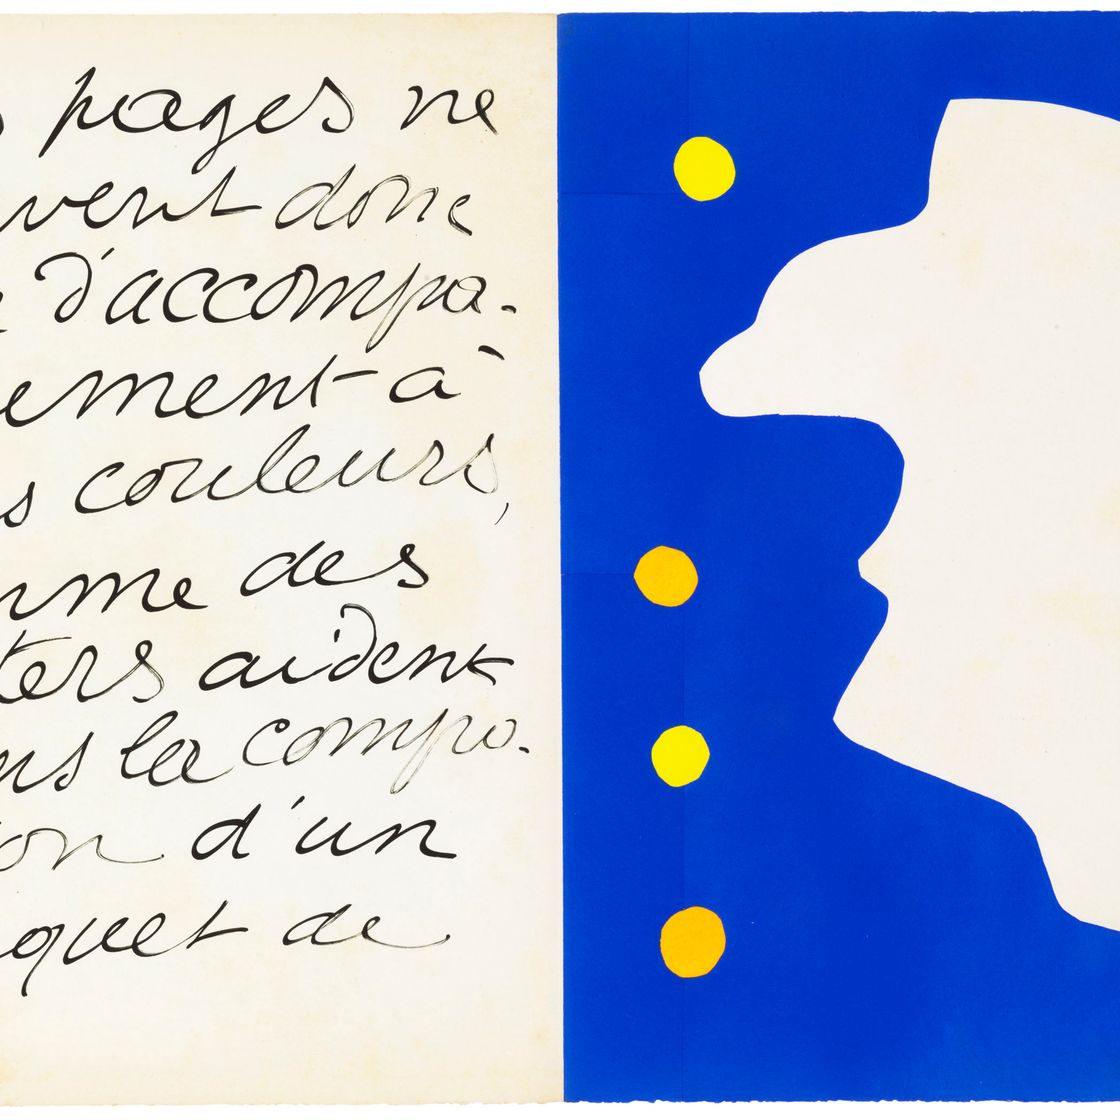 s pages ne
vent donc
e d'accompa-
ement à
s couleurs,
mme des
ters aident
ns la compo-
ion d'un
quet de